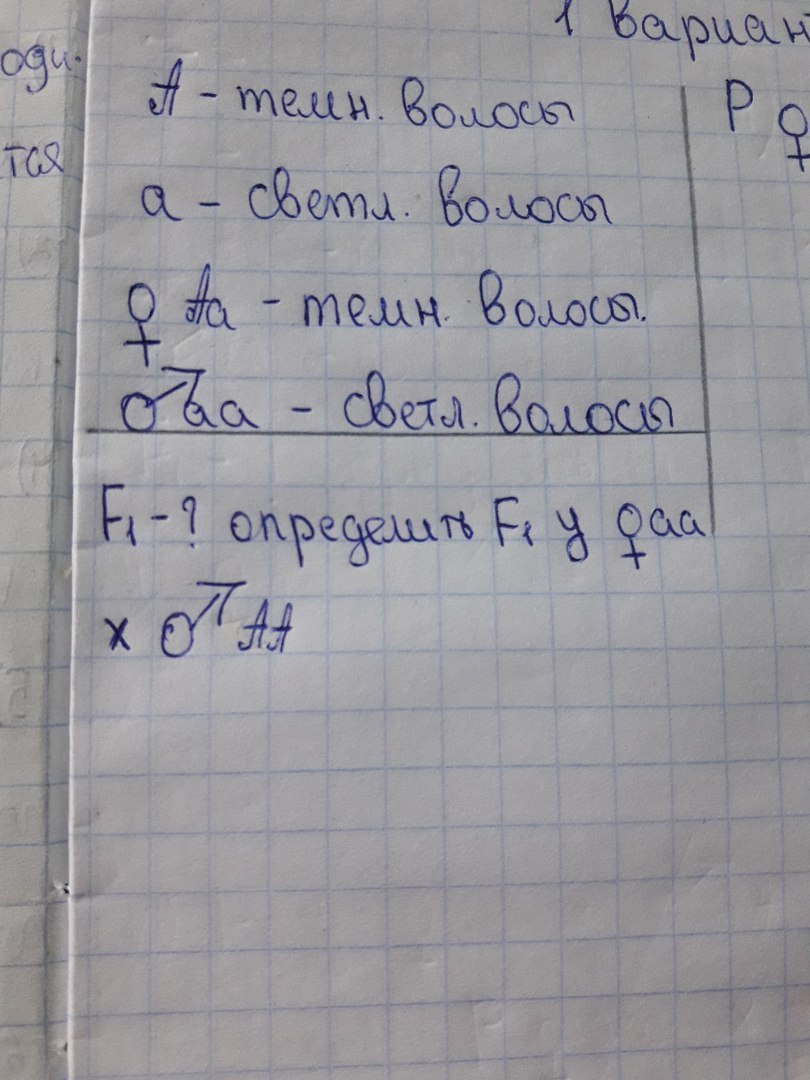 1 Вариан
оди.
А - темн. волосы
Р ♀
тся
а - светл. волосы
♀ Аа - темн. волосы.
♂ аа - светл. волосы
F₁ - ? определить F₁ у ♀ аа
х ♂ АА